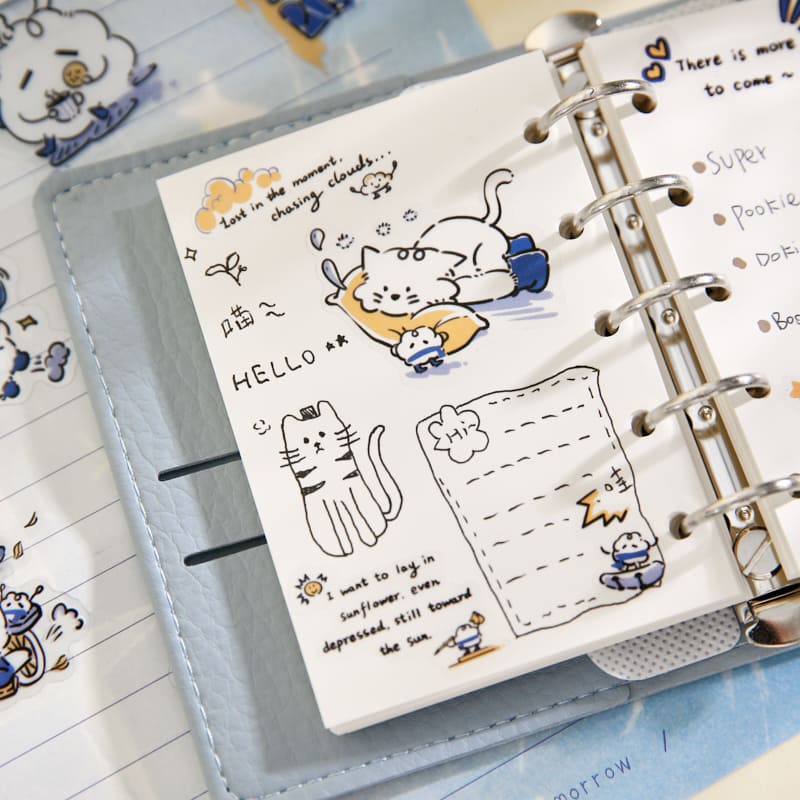 Lost in the moment.
chasing clouds...
喵~
HELLO
Hi~
哇
I want to lay in
sunflower. even
depressed. still toward
the sun.
There is more
to come ~
Super
Pookie
Doki
morrow /